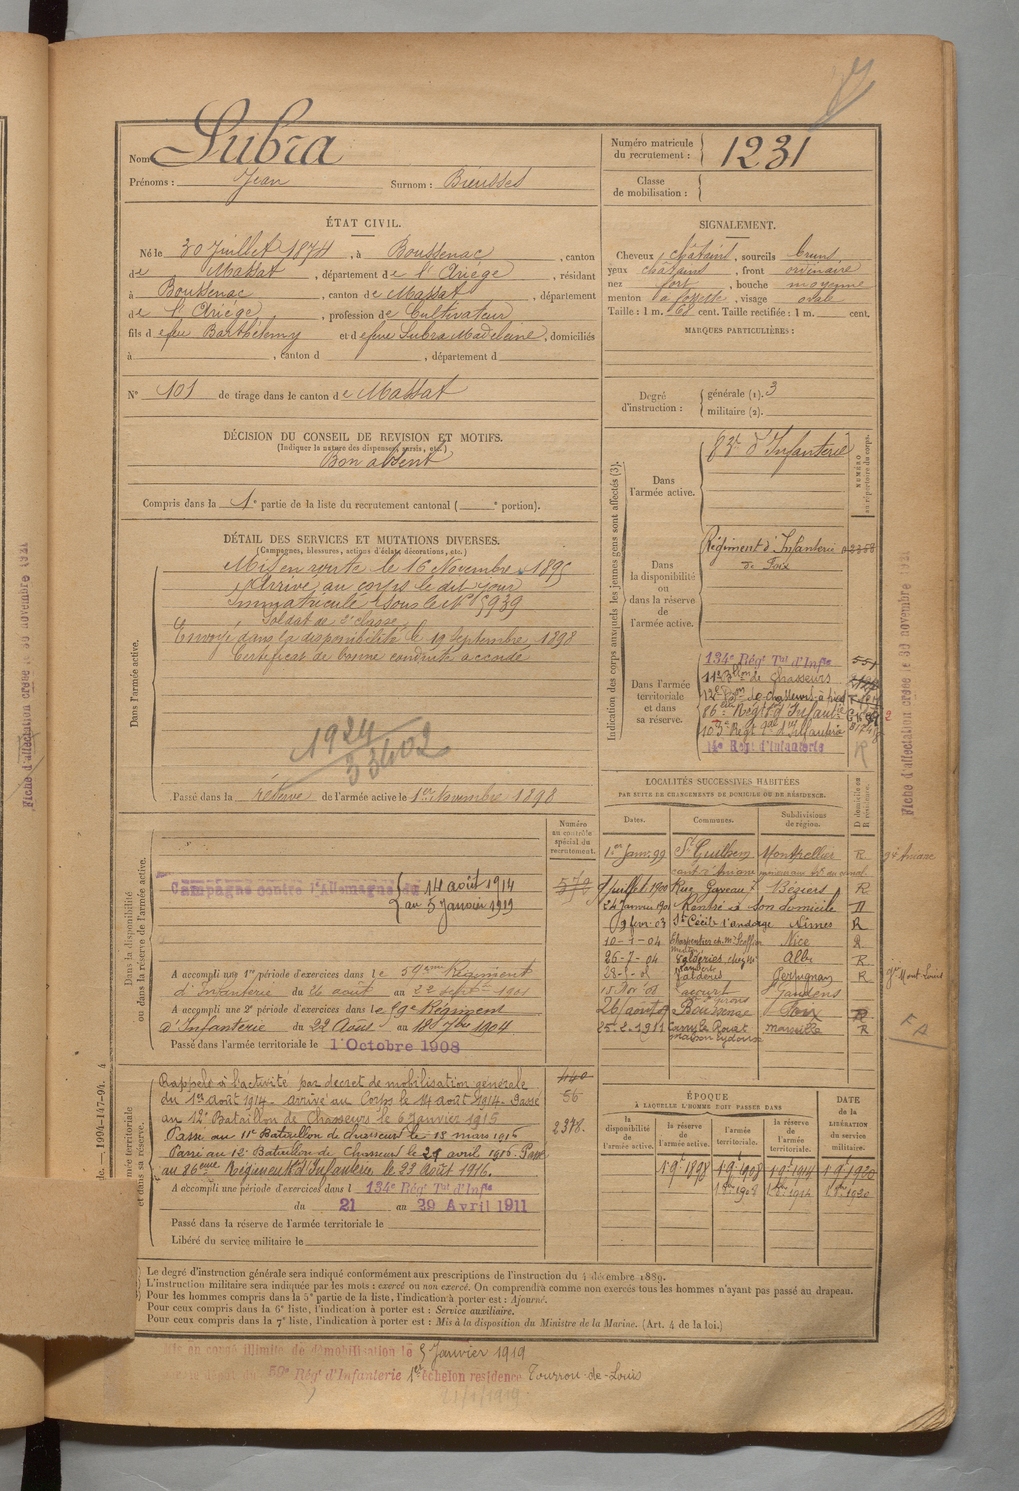 Nom Lubra
Prénoms : Jean Surnom : Bieusses
Numéro matricule du recrutement : 1231
Classe de mobilisation :
ÉTAT CIVIL.
Né le 30 Juillet 1874, à Boussenac, canton
de Massat, département de l'Ariège, résidant
à Boussenac, canton de Massat, département
de l'Ariège, profession de Cultivateur
fils de feu Barthélemy et de feue Lubra Madeleine, domiciliés
à , canton d , département d
N° 101 de tirage dans le canton de Massat
SIGNALEMENT.
Cheveux châtains, sourcils bruns
yeux châtains, front ordinaire
nez fort, bouche moyenne
menton à fossette, visage ovale
Taille : 1 m. 68 cent. Taille rectifiée : 1 m. cent.
MARQUES PARTICULIÈRES :
Degré d'instruction : générale (1). 3
militaire (2).
DÉCISION DU CONSEIL DE REVISION ET MOTIFS.
(Indiquer la nature des dispenses, sursis, etc.)
Bon absent
Compris dans la 1e partie de la liste du recrutement cantonal ( e portion).
DÉTAIL DES SERVICES ET MUTATIONS DIVERSES.
(Campagnes, blessures, actions d'éclat, décorations, etc.)
Dans l'armée active.
Mis en route le 16 Novembre 1895
Arrivé au corps le dit jour
Immatriculé sous le N° 5939
Soldat de 2e classe
Envoyé dans la disponibilité le 19 Septembre 1898
Certificat de bonne conduite accordé
1924
33402
Passé dans la réserve de l'armée active le 1er Novembre 1898
Indication des corps auxquels les jeunes gens sont affectés (3).
NUMÉRO au répertoire du corps.
Dans l'armée active.
83e d'Infanterie
Dans la disponibilité ou dans la réserve de l'armée active.
Régiment d'Infanterie
de Foix
Dans l'armée territoriale et dans sa réserve.
134e Régt Tal d'Infie 551
11e Bllon de Chasseurs
12e Bon de chasseurs à pied
86ème Régt d'Infanterie
103e Régt Tal d'Infanterie
14e Régt d'Infanterie
R
Fiche d'affectation créée le 30 novembre 1921
Fiche d'affectation créée le 30 novembre 1921
LOCALITÉS SUCCESSIVES HABITÉES
PAR SUITE DE CHANGEMENTS DE DOMICILE OU DE RÉSIDENCE.
D domicile ou R résidence.
Dates. Communes. Subdivisions de région.
1er Janv. 99 St Guilhem Montpellier R
Juillet 1900 Rue Gaveau 7 Béziers R
24 Janvier 1901 Rentré à son domicile D
9 févr. 03 Ste Cécile d'andorge Nîmes R
10-1-04 Nice R
26-2-04 Albi R
28-1-05 Perpignan R
15 Nov 05 Lacourt St Gaudens
26 août 09 Boussenac Foix R
25-2-1911 Marseille R
FA
Dans la disponibilité ou dans la réserve de l'armée active.
Numéro au contrôle spécial du recrutement.
Campagne contre l'Allemagne du 14 août 1914
au 5 Janvier 1919
A accompli une 1re période d'exercices dans le 59ème Régiment
d'Infanterie du 26 août au 22 septbre 1901
A accompli une 2e période d'exercices dans le 59e Régiment
d'Infanterie du 22 Août au 18 7bre 1904
Passé dans l'armée territoriale le 1 Octobre 1908
Rappelé à l'activité par decret de mobilisation générale
du 1er août 1914 - arrivé au Corps le 14 août 1914 - Passé
au 12e Bataillon de Chasseurs le 6 janvier 1915
Passé au 11e Bataillon de chasseurs le 18 mars 1915
Passé au 12e Bataillon de Chasseurs le 29 avril 1915 - Passé
au 86ème Régiment d'Infanterie le 22 Août 1916.
440
56
2378.
A accompli une période d'exercices dans l 134e Régt Tal d'Infie
du 21 au 29 Avril 1911
Passé dans la réserve de l'armée territoriale le
Libéré du service militaire le
ÉPOQUE
À LAQUELLE L'HOMME DOIT PASSER DANS
la disponibilité de l'armée active. la réserve de l'armée active. l'armée territoriale. la réserve de l'armée territoriale. DATE de la LIBÉRATION du service militaire.
1 9e 1898 1 9e 1908 1 9e 1914 1 9e 1920
1 8re 1908 1 8re 1914 1 8re 1920
Le degré d'instruction générale sera indiqué conformément aux prescriptions de l'instruction du 4 décembre 1889.
L'instruction militaire sera indiquée par les mots : exercé ou non exercé. On comprendra comme non exercés tous les hommes n'ayant pas passé au drapeau.
Pour les hommes compris dans la 5e partie de la liste, l'indication à porter est : Ajourné.
Pour ceux compris dans la 6e liste, l'indication à porter est : Service auxiliaire.
Pour ceux compris dans la 7e liste, l'indication à porter est : Mis à la disposition du Ministre de la Marine. (Art. 4 de la loi.)
Mis en congé illimité de démobilisation le 5 Janvier 1919
dépôt du 59e Régt d'Infanterie 1er échelon residence Tourrou-de-Louis
21/1/1919